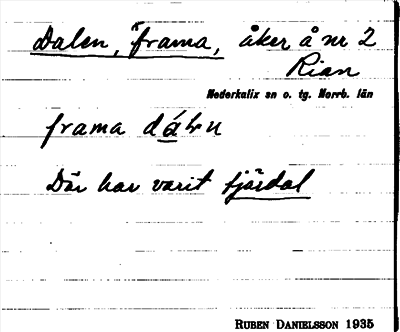 Dalen, frama, åker å nr 2
Rian
Nederkalix sn o. tg. Norrb. län
frama
Där har varit fjärdal
RUBEN DANIELSSON 1935